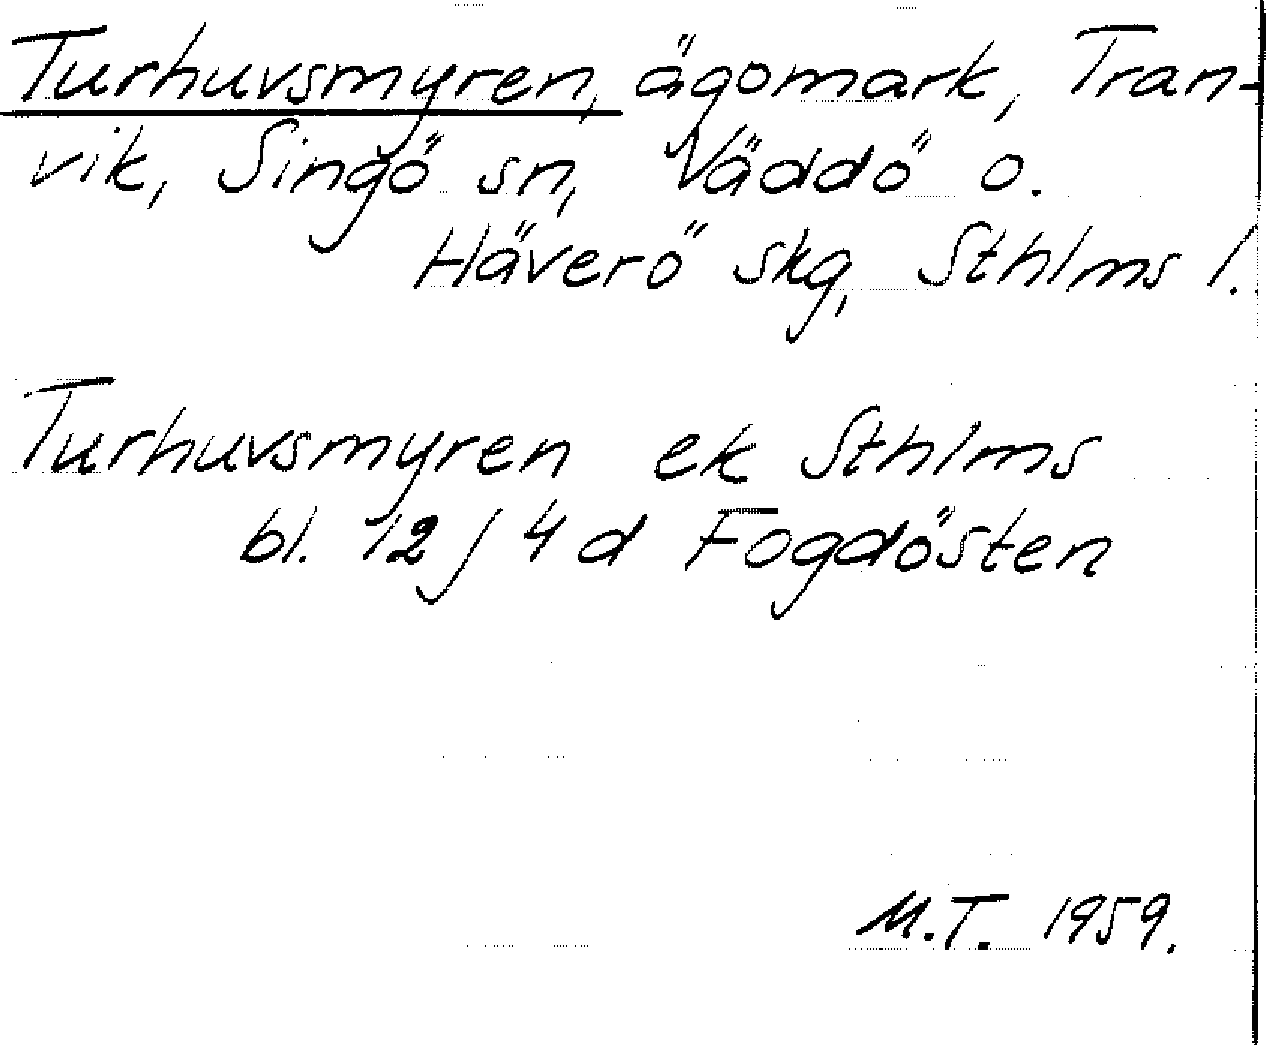 Turhuvsmyren, ägomark, Tran-
vik, Singö sn, Väddö o.
Häverö skg, Sthlms l.
Turhuvsmyren ek Sthlms
bl. 12 j 4 d Fogdösten
M.T. 1959.